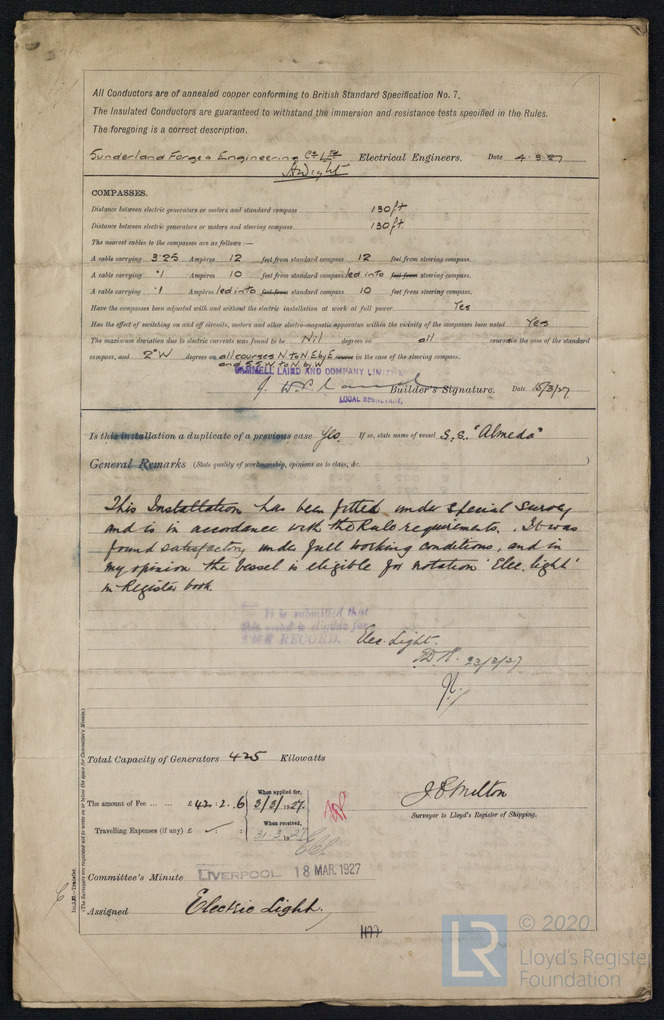 All Conductors are of annealed copper conforming to British Standard Specification No. 7.
The Insulated Conductors are guaranteed to withstand the immersion and resistance tests specified in the Rules.
The foregoing is a correct description.
Sunderland Forge & Engineering Co Ltd Electrical Engineers. Date 4.3.27
COMPASSES.
Distance between electric generators or motors and standard compass 130ft
Distance between electric generators or motors and steering compass 130ft.
The nearest cables to the compasses are as follows:—
A cable carrying 3.25 Ampères 12 feet from standard compass 12 feet from steering compass.
A cable carrying .1 Ampères 10 feet from standard compass led into feet from steering compass.
A cable carrying .1 Ampères led into feet from standard compass 10 feet from steering compass.
Have the compasses been adjusted with and without the electric installation at work at full power Yes
Has the effect of switching on and off circuits, motors and other electro-magnetic apparatus within the vicinity of the compasses been noted Yes
The maximum deviation due to electric currents was found to be Nil degrees on all courses in the case of the standard
compass, and 2°W degrees on all courses N. to N.E. by E. course in the case of the steering compass.
and S.S.W. to N. by W.
CAMMELL LAIRD AND COMPANY LIMITED
Builder's Signature. Date 15/3/27
LOCAL SECRETARY.
Is this installation a duplicate of a previous case Yes. If so, state name of vessel S.S. "Almeda"
General Remarks (State quality of workmanship, opinions as to class, &c. )
This Installation has been fitted under special survey
and is in accordance with the Rule requirements. It was
found satisfactory under full working conditions, and in
my opinion the vessel is eligible for notation 'Elec. light'
in Register book.
It is submitted that
this vessel is eligible for
THE RECORD.
Elec. Light.
23/3/27
Total Capacity of Generators 425 Kilowatts
The amount of Fee ... ... £ 42 : 2 : 6
When applied for,
3/3/1927.
Travelling Expenses (if any) £
When received,
31.3.1927
Surveyor to Lloyd's Register of Shipping.
Committee's Minute LIVERPOOL 18 MAR. 1927
Assigned Electric Light.
(The Surveyors are requested not to write on or below the space for Committee's Minute.)
LR
© 2020
Lloyd's Register
Foundation